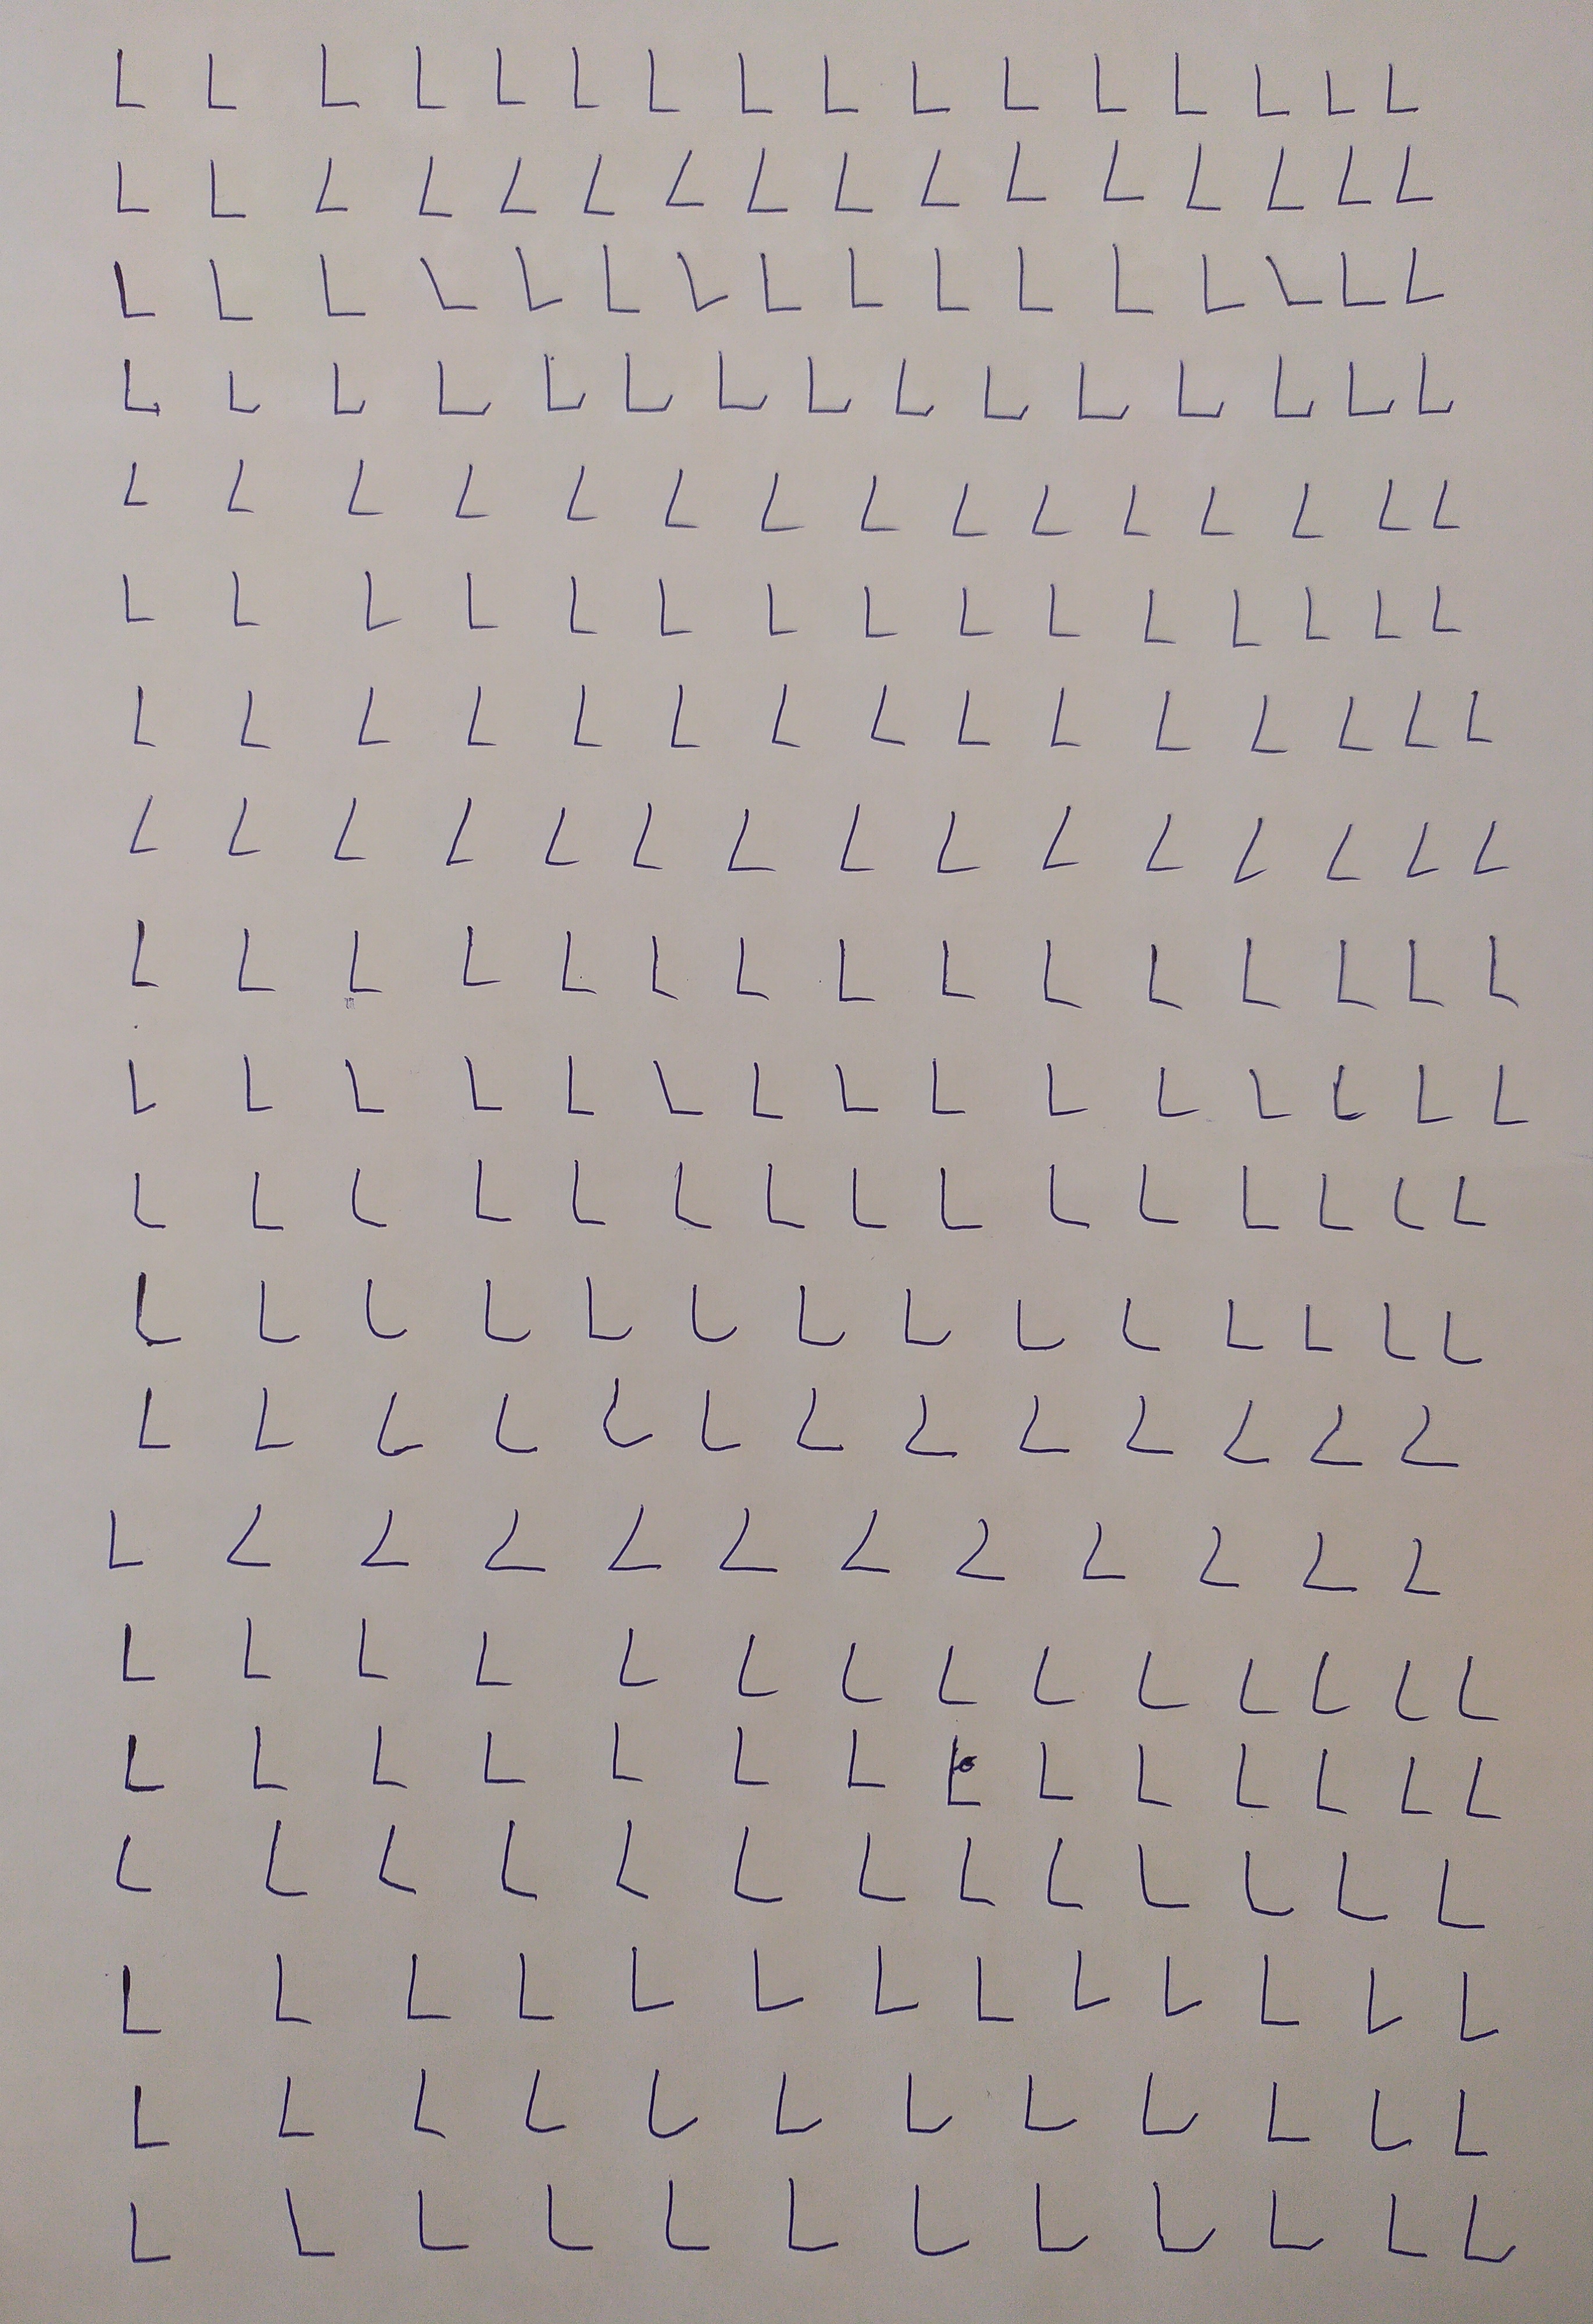 L L L L L L L L L L L L L L L L
L L L L L L L L L L L L L L L L
L L L L L L L L L L L L L L L L
L L L L L L L L L L L L L L L
L L L L L L L L L L L L L L L
L L L L L L L L L L L L L L L
L L L L L L L L L L L L L L L
L L L L L L L L L L L L L L L
L L L L L L L L L L L L L L L
L L L L L L L L L L L L L L L
L L L L L L L L L L L L L L L
L L L L L L L L L L L L L L
L L L L L L L L L L L L L
L L L L L L L L L L L L
L L L L L L L L L L L L L L
L L L L L L L L L L L L L L
L L L L L L L L L L L L L
L L L L L L L L L L L L L
L L L L L L L L L L L L
L L L L L L L L L L L L